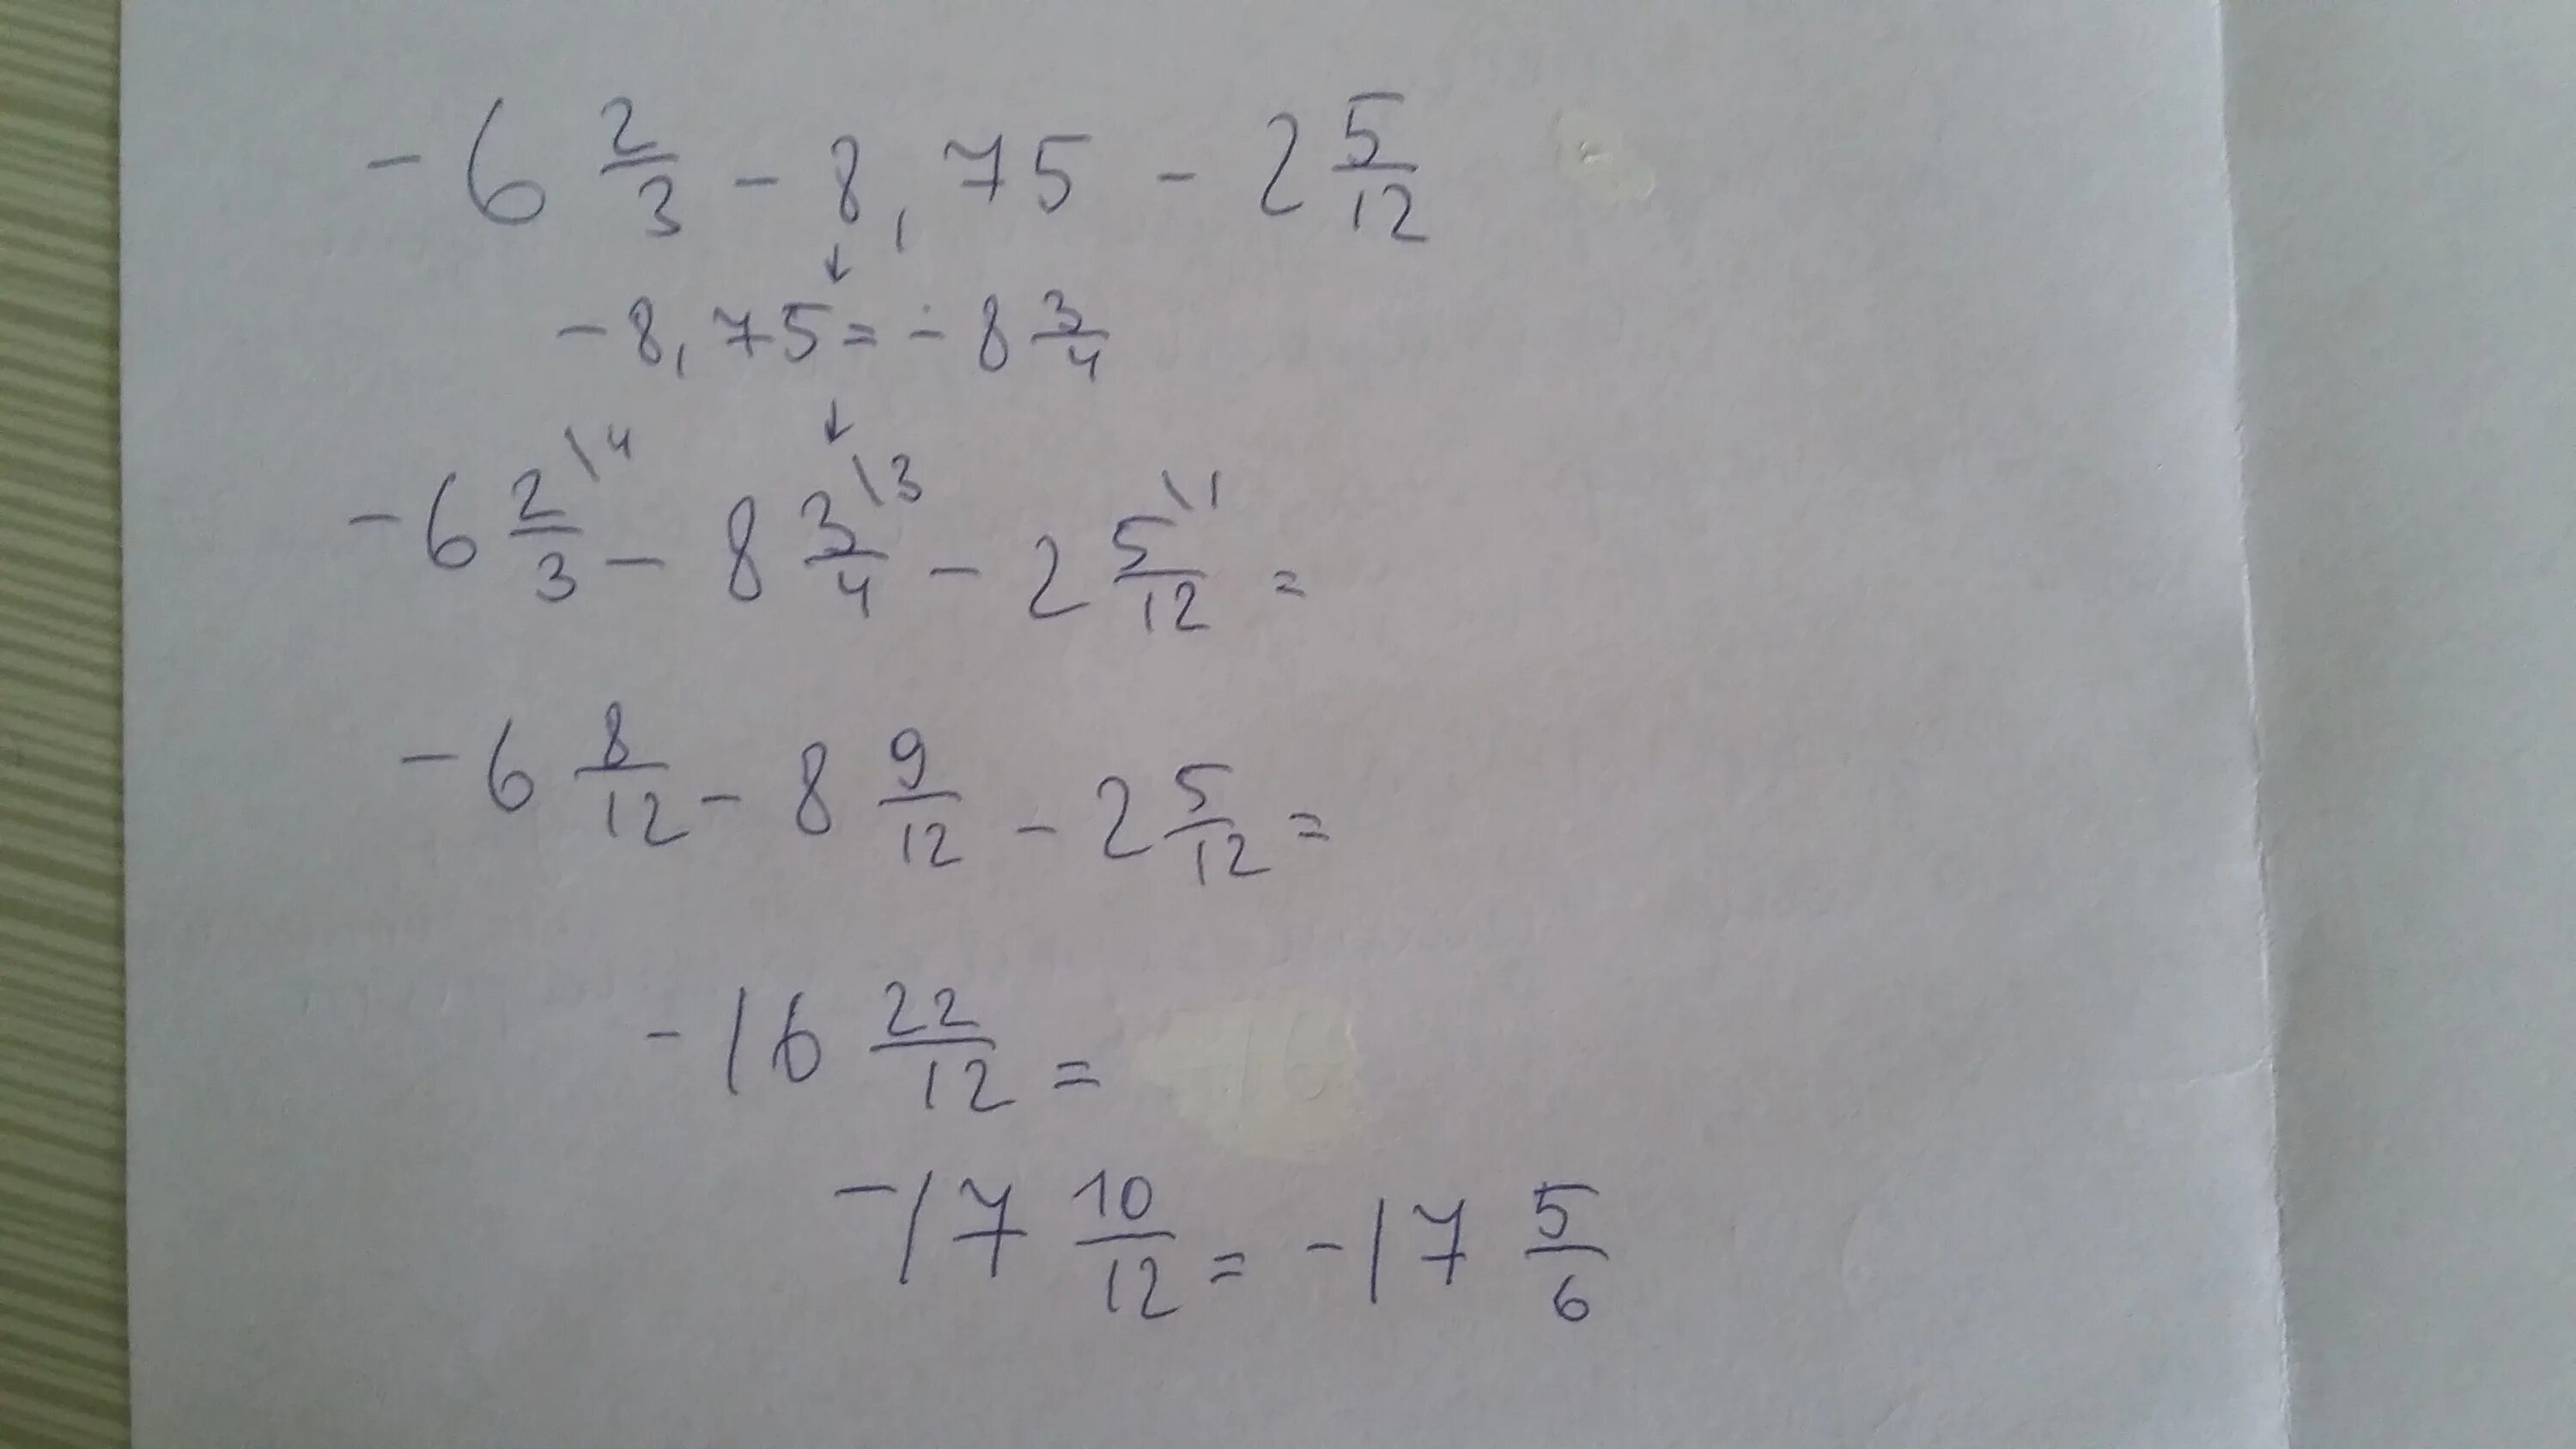 -6 2/3 - 8,75 - 2 5/12
-8,75 = -8 3/4
-6 2/3 \4 - 8 3/4 \3 - 2 5/12 \1 =
-6 8/12 - 8 9/12 - 2 5/12 =
-16 22/12 =
-17 10/12 = -17 5/6